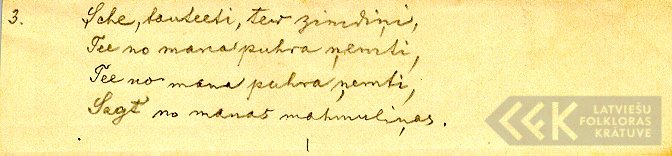 3. Sche, tauteeti, tew zimdiņi,
Tee no mana puhra ņemti,
Tee no mana puhra ņemti,
Sagt no manas mahmuliņas.
LATVIEŠU
FOLKLORAS
KRĀTUVE